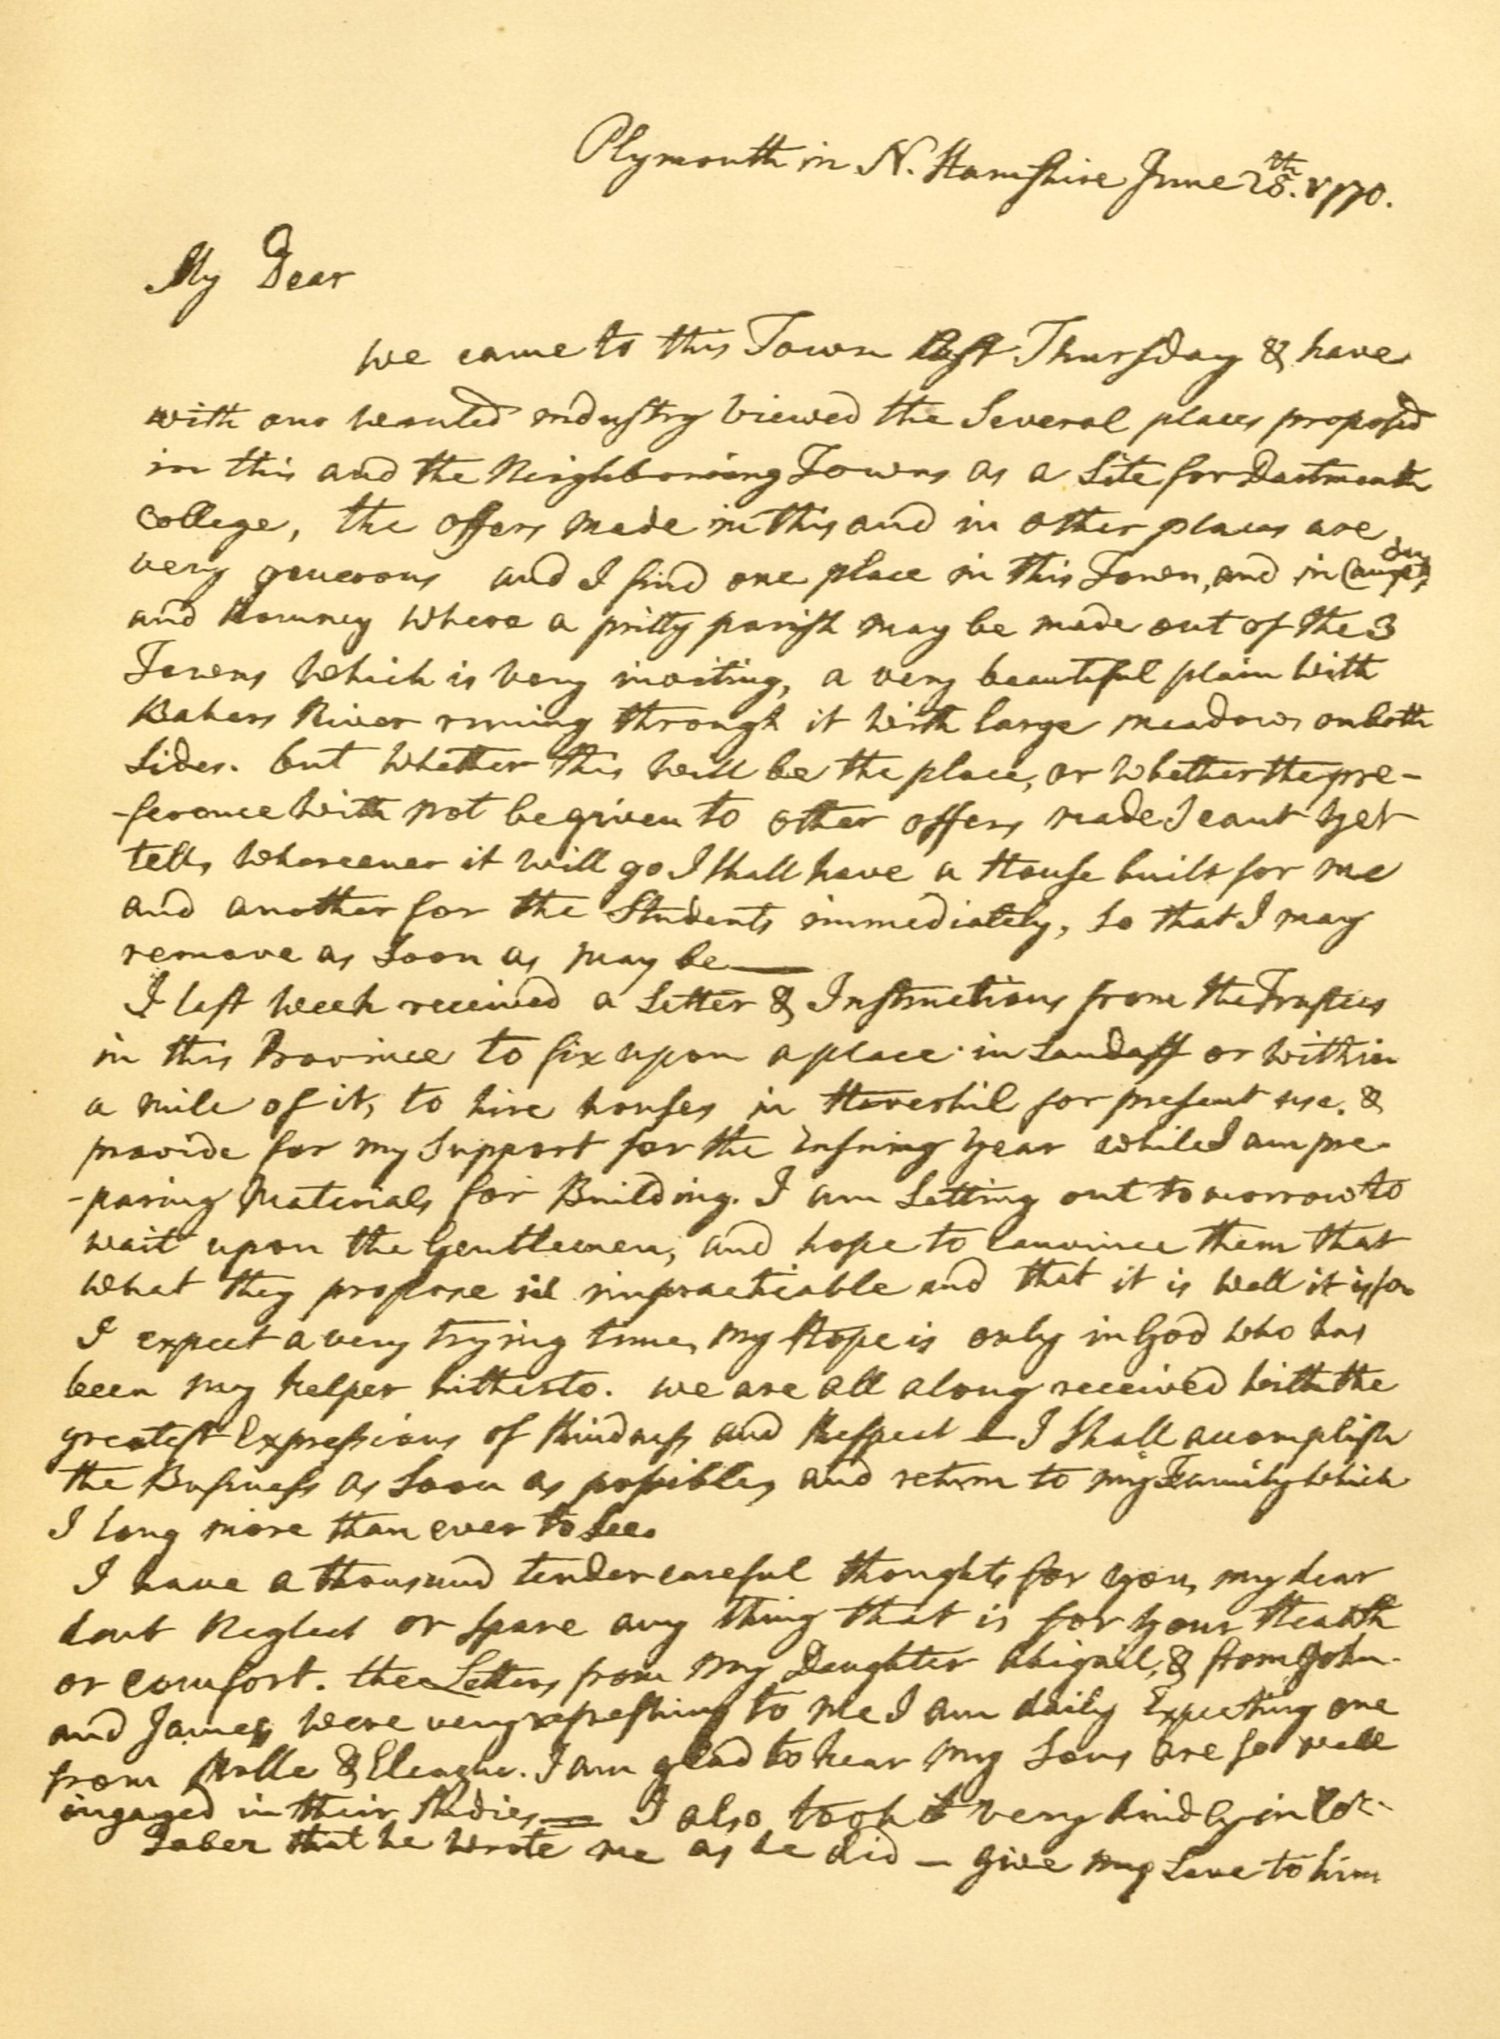 Plymouth in N. Hampshire June 28.th 1770.
My Dear
we came to this Town last Thursday & have
with our wonted industry viewed the Several places proposed
in this and the Neighboring Towns as a Site for Dartmouth
College, the offers made in this and in other places are
very generous and I find one place in this Town, and in
and Romney where a pritty parish may be made out of the 3
Towns which is very inviting, a very beautiful plain with
Bakers River runing through it with large meadows on both
Sides. but whether this will be the place, or whether the pre-
-ference with not be given to other offers made I cant yet
tell, whereever it will go I shall have a House built for me
and another for the Students immediately, so that I may
remove as Soon as may be —
I last week received a Letter & Instructions from the Trustees
in this Province to fix upon a place in Landaff or within
a mile of it, to hire houses in Haverhil for present use. &
provide for my Support for the Ensuing year while I am pre-
-paring Materials for Building. I am Setting out tomorrow to
wait upon the Gentlemen, and hope to convince them that
what they propose is impracticable and that it is well it is so
I expect a very trying time, my Hope is only in God who has
been my helper hitherto. we are all along received with the
greatest Expressions of Kindness and Respect — I shall accomplish
the Business as Soon as possible, and return to my Family which
I long more than ever to See.
I have a thousand tender careful thoughts for you, my dear
dont Neglect or spare any thing that is for your Health
or comfort. the Letters from my Daughter Abigail, & from John
and James were very refreshing to me I am daily Expecting one
from & Eleazar. I am glad to hear my Sons are so well
ingaged in their Studies — I also took it very kindly in
Taber that he wrote me as he did — give my Love to him